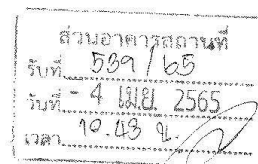 ส่วนอาคารสถานที่
รับที่ 539 / 65
วันที่ - 4 เม.ย. 2565
เวลา 10.43 น.